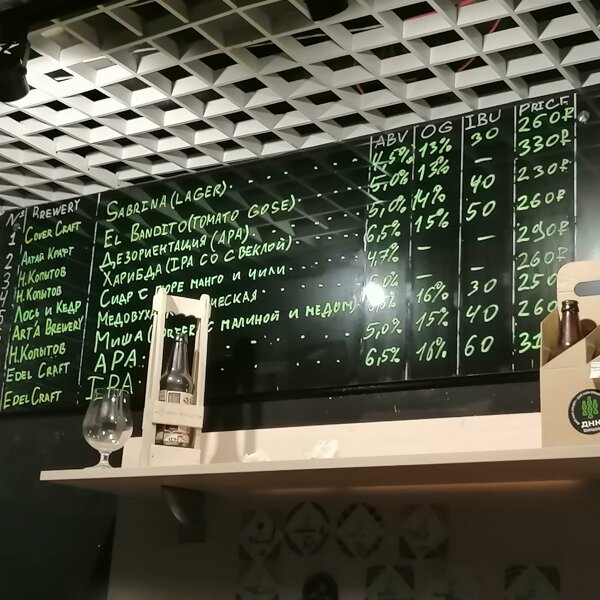 № BREWERY ABV OG IBU PRICE
1 COVER CRAFT SABRINA (LAGER) 4,5% 13% 30 260₽
2 АЛТАЙ КРАФТ EL BANDITO (TOMATO GOSE) 5,0% 13% — 330₽
3 Н.КОПЫТОВ ДЕЗОРИЕНТАЦИЯ (APA) 5,0% 14% 40 230₽
Н.КОПЫТОВ ХАРИБДА (IPA СО СВЕКЛОЙ) 6,5% 15% 50 260₽
ЛОСЬ И КЕДР СИДР С ПЮРЕ МАНГО И ЧИЛИ 4,7% — — 290₽
ART'A BREWERY — — 260₽
Н.КОПЫТОВ МИША С МАЛИНОЙ И МЕДОМ) 16% 30 250
EDEL CRAFT APA 5,0% 15% 40 260
EDEL CRAFT IPA 6,5% 16% 60
ДНК